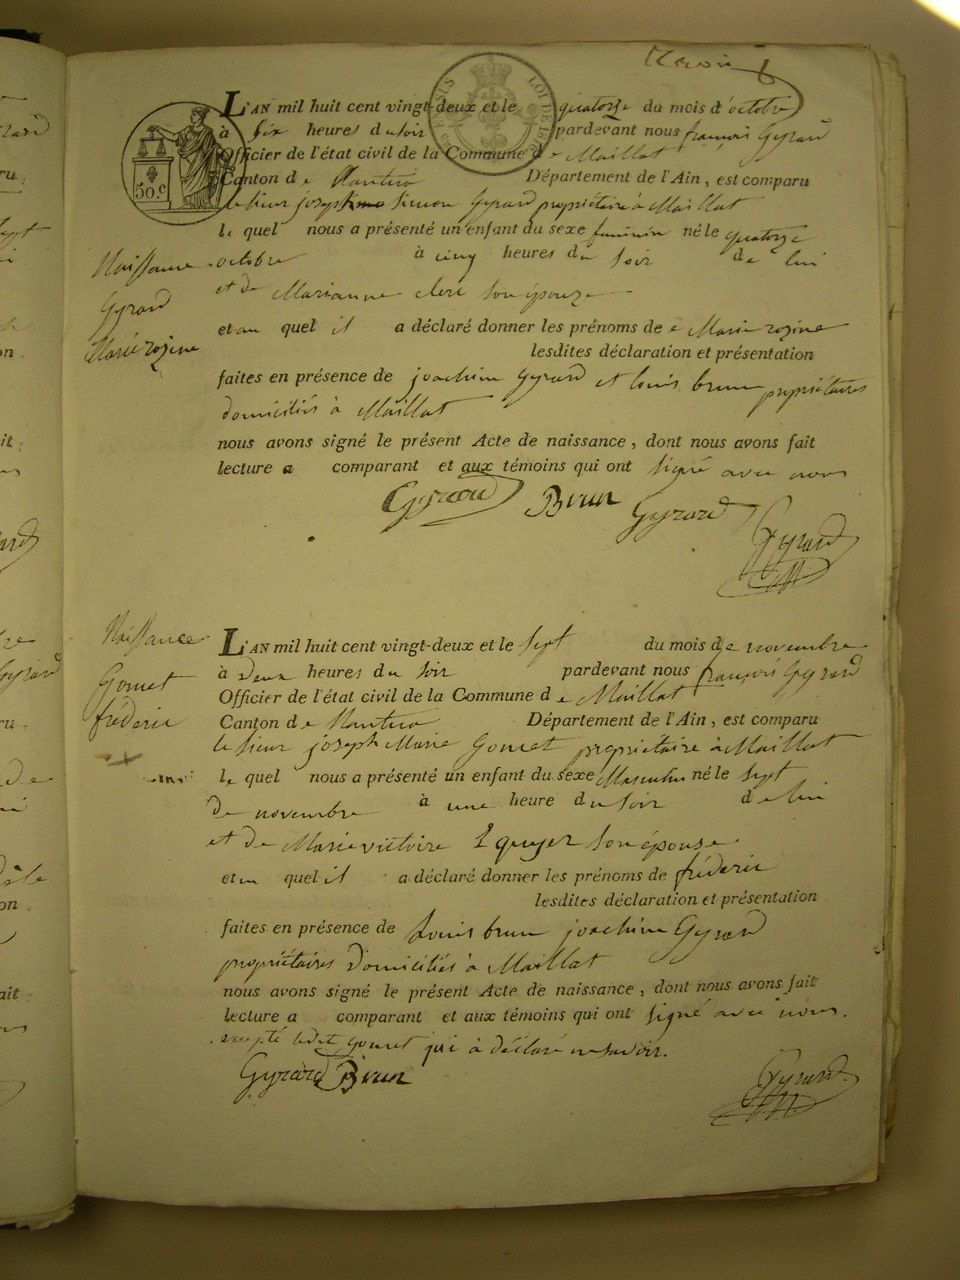 L'AN mil huit cent vingt-deux et le quatorze du mois d'octobre
à six heures du soir pardevant nous françois Gyrard
Officier de l'état civil de la Commune de Maillat
Canton de Nantua Département de l'Ain, est comparu
le sieur joseph simon Gyrard propriétaire à Maillat
le quel nous a présenté un enfant du sexe feminin né le quatorze
octobre à cinq heures du soir de lui
et de Marianne clerc son épouze
et au quel il a déclaré donner les prénoms de Marie rozine
lesdites déclaration et présentation
faites en présence de joachim Gyrard et louis brun propriétaires
domiciliés à Maillat
nous avons signé le présent Acte de naissance, dont nous avons fait
lecture a comparant et aux témoins qui ont signé avec nous
Gyrard Brun Gyrard
Gyrard
Naissance
Gyrard
Marie rozine
50.C
L'AN mil huit cent vingt-deux et le sept du mois de novembre
à deux heures du soir pardevant nous françois Gyrard
Officier de l'état civil de la Commune de Maillat
Canton de Nantua Département de l'Ain, est comparu
le sieur joseph Marie Gomet propriétaire à Maillat
le quel nous a présenté un enfant du sexe Masculin né le sept
de novembre à une heure du soir de lui
et de Marie victoire son épouse
et au quel il a déclaré donner les prénoms de fréderic
lesdites déclaration et présentation
faites en présence de Louis brun joachim Gyrard
propriétaires domiciliés à Maillat
nous avons signé le présent Acte de naissance, dont nous avons fait
lecture a comparant et aux témoins qui ont signé avec nous.
excepté ledit Gomet qui à déclaré ne savoir.
Gyrard Brun
Gyrard
Naissance
Gomet
fréderic